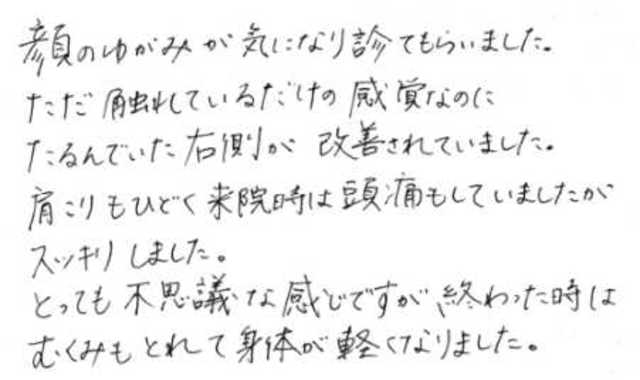 顔のゆがみが気になり診てもらいました。
ただ触れているだけの感覚なのに
たるんでいた右側が改善されていました。
肩こりもひどく来院時は頭痛もしていましたが
スッキリしました。
とっても不思議な感じですが、終わった時は
むくみもとれて身体が軽くなりました。